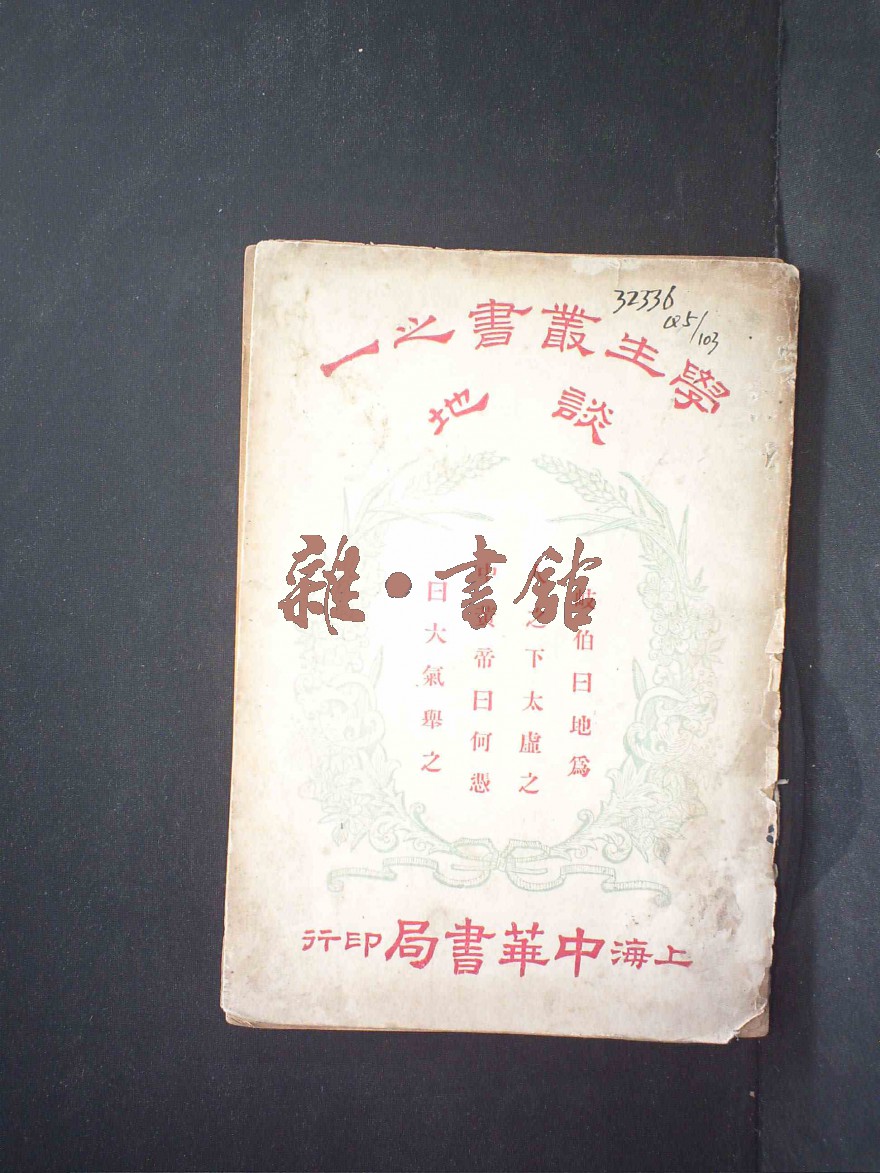 32336
學生叢書之一
談地
岐伯曰地爲
之下太虛之
帝曰何憑
曰大氣舉之
上海中華書局印行
雜·書館